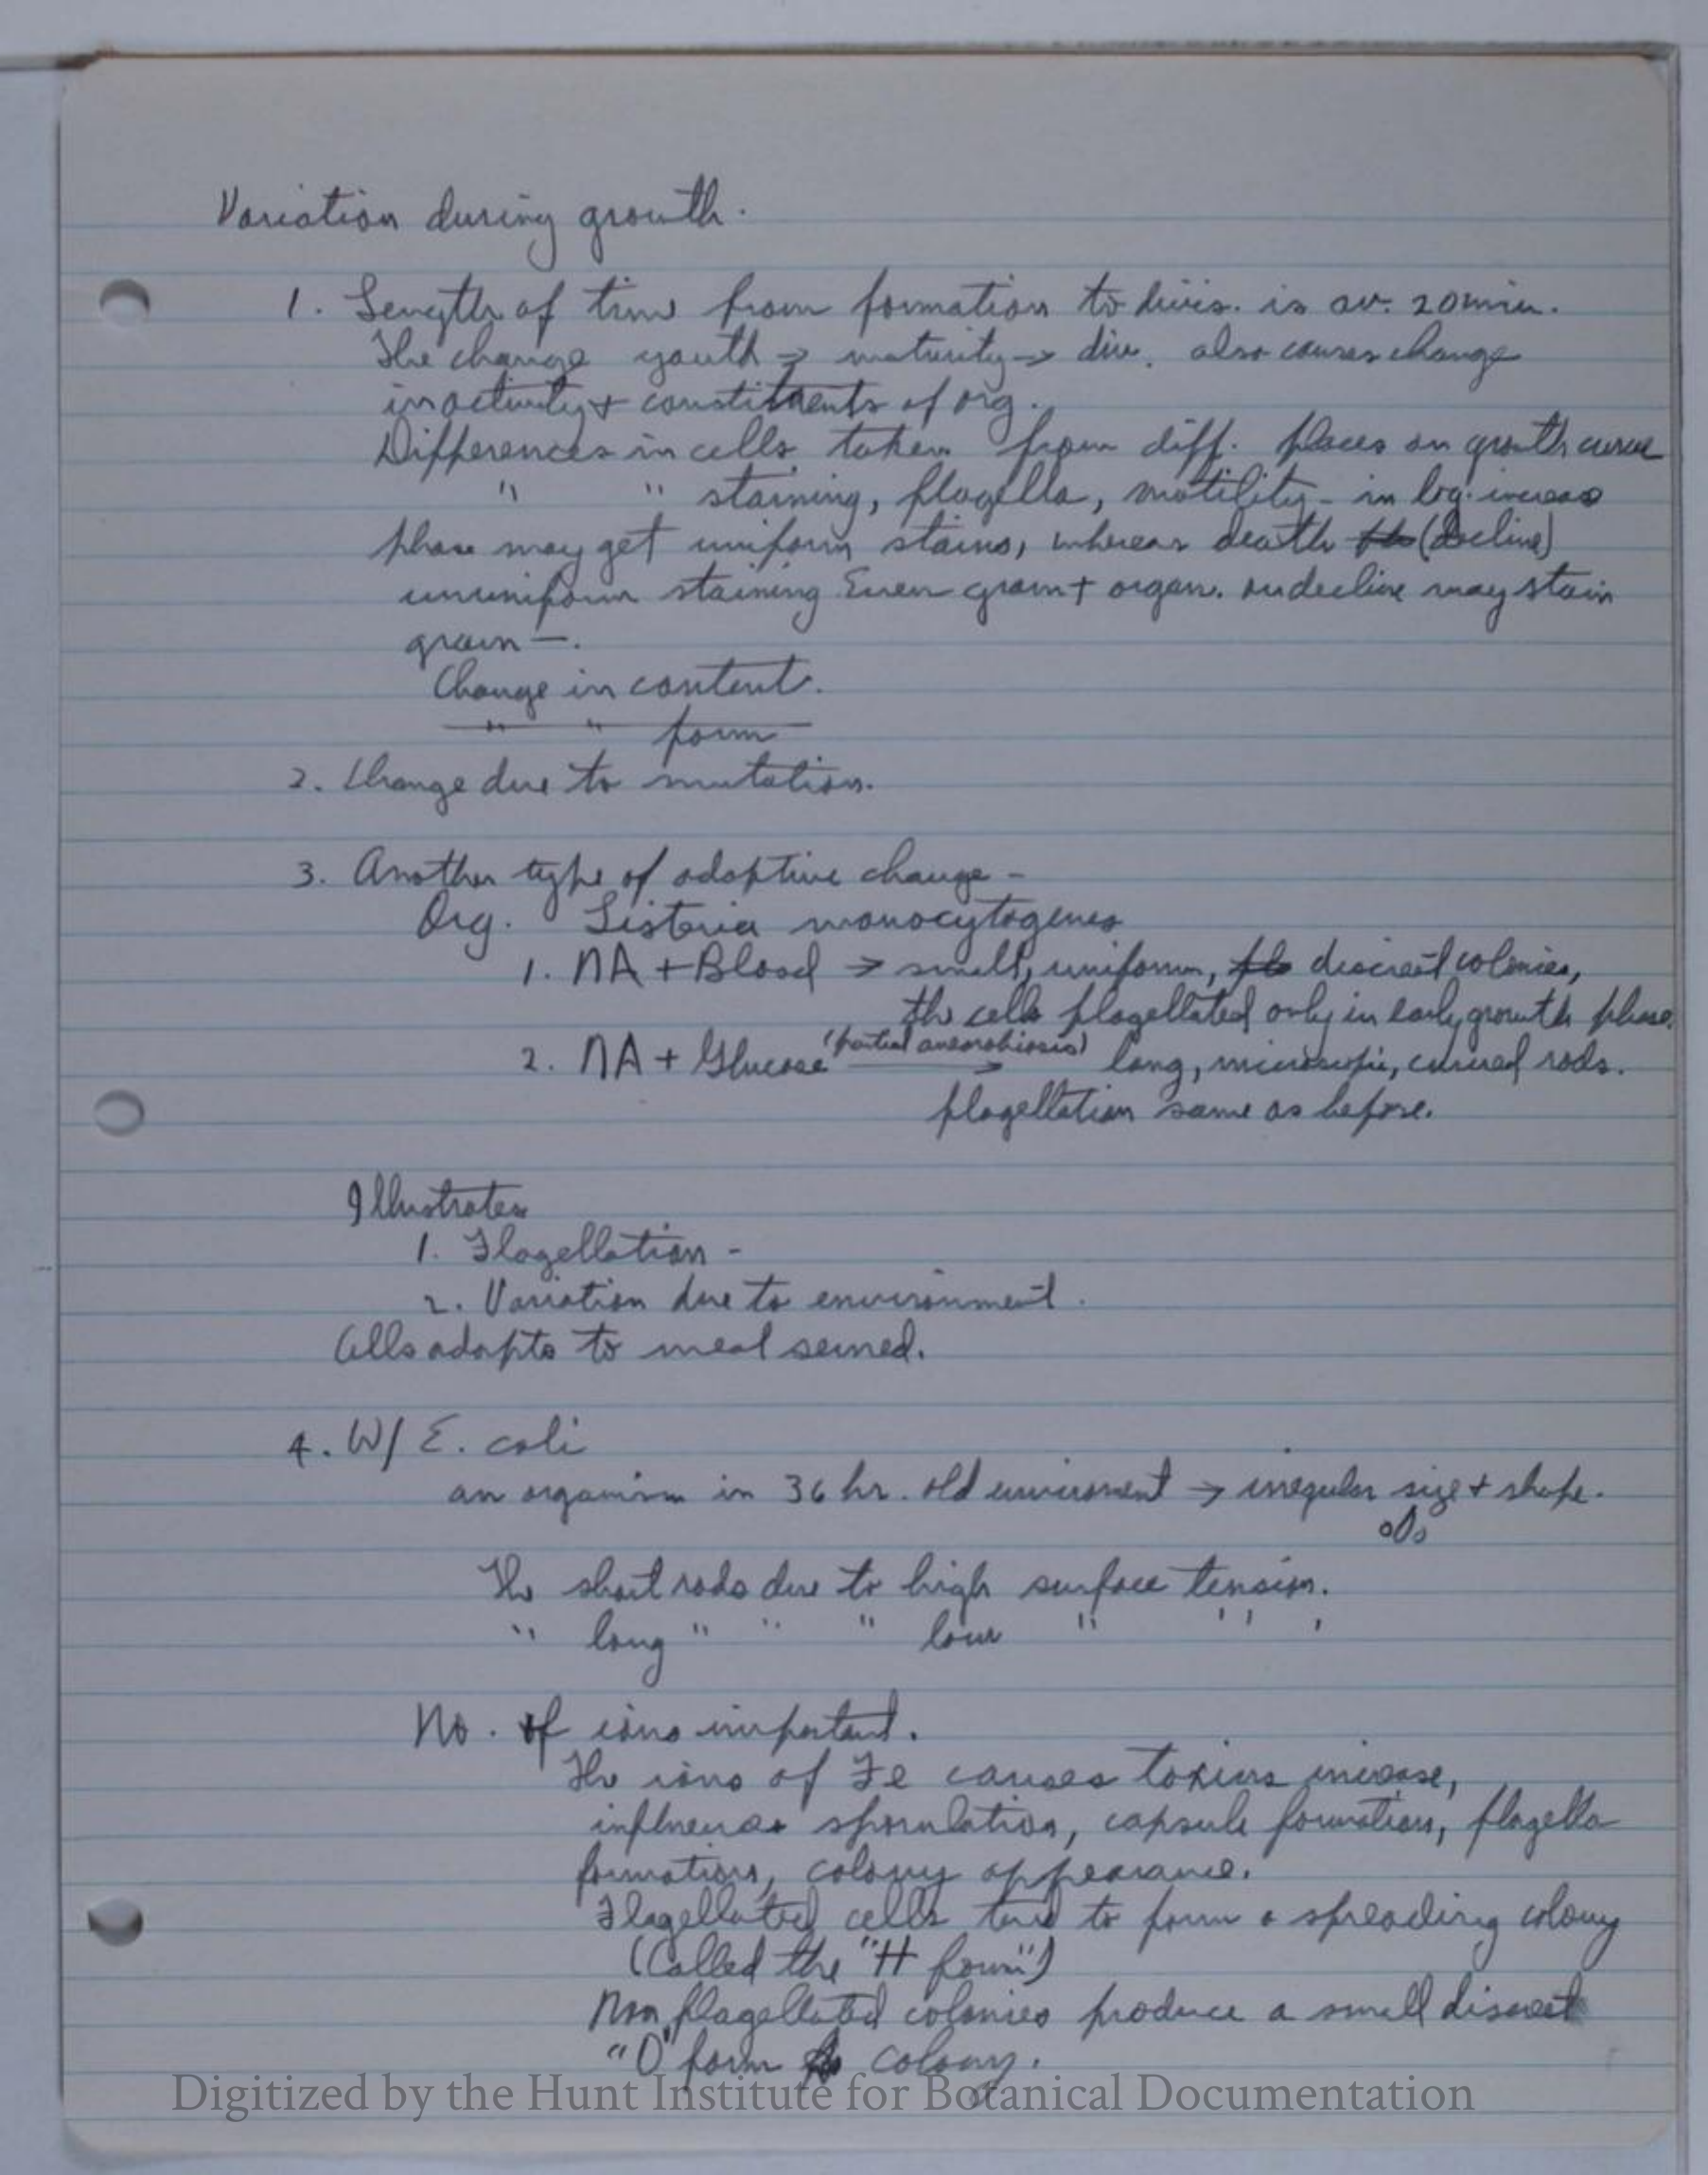 Variation during growth.
1. Length of time from formation to divis. is av. 20 min.
The change youth → maturity → div. also causes change
in activity + constituents of org.
Differences in cells taken from diff. places on growth curve
" " staining, flagella, motility - in log. increase
phase may get uniform stains, whereas death (decline)
ununiform staining. Even gram + organ. on decline may stain
gram -.
Change in content.
" " form
2. Change due to mutation.
3. Another type of adaptive change -
Org. Listeria monocytogenes
1. NA + Blood → small, uniform, discreet colonies,
the cells flagellated only in early growth phase.
2. NA + Glucose (partial anearobiosis) → long, microscopic, curved rods.
flagellation same as before.
Illustrates
1. Flagellation -
2. Variation due to environment.
Cells adapts to meal served.
4. W/ E. coli
an organism in 36 hr. old enviroment → irregular size + shape.
The short rods due to high surface tension.
" long " " " low " " .
No. of ions important.
The ions of Fe causes toxins increase,
influences sporulation, capsule formation, flagella
formation, colony appearance.
Flagellated cells tend to form a spreading colony
(Called the "H form")
Non flagellated colonies produce a small discreet
"O" form colony.
Digitized by the Hunt Institute for Botanical Documentation